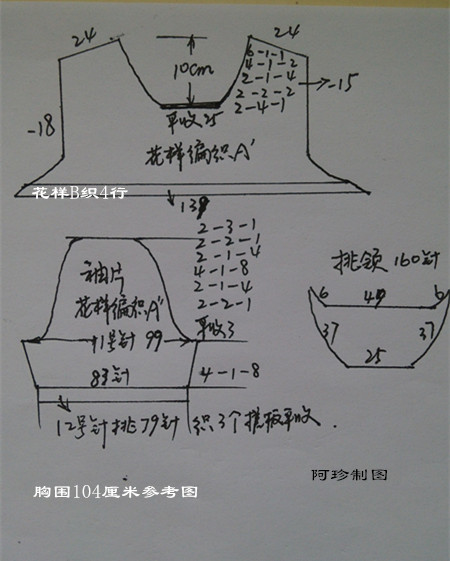 24
24
10cm
6-1-1
4-1-2
2-1-4
2-2-2
2-4-1
-15
-18
平收25
花样编织A'
花样B织4行
2-3-1
2-2-1
2-1-4
4-1-8
2-1-4
2-2-1
平收3
袖片
花样编织A'
11号针 99
83针
4-1-8
12号针挑79针 织3个搓板平收.
挑领160针
6
6
37
37
25
阿珍制图
胸围104厘米参考图